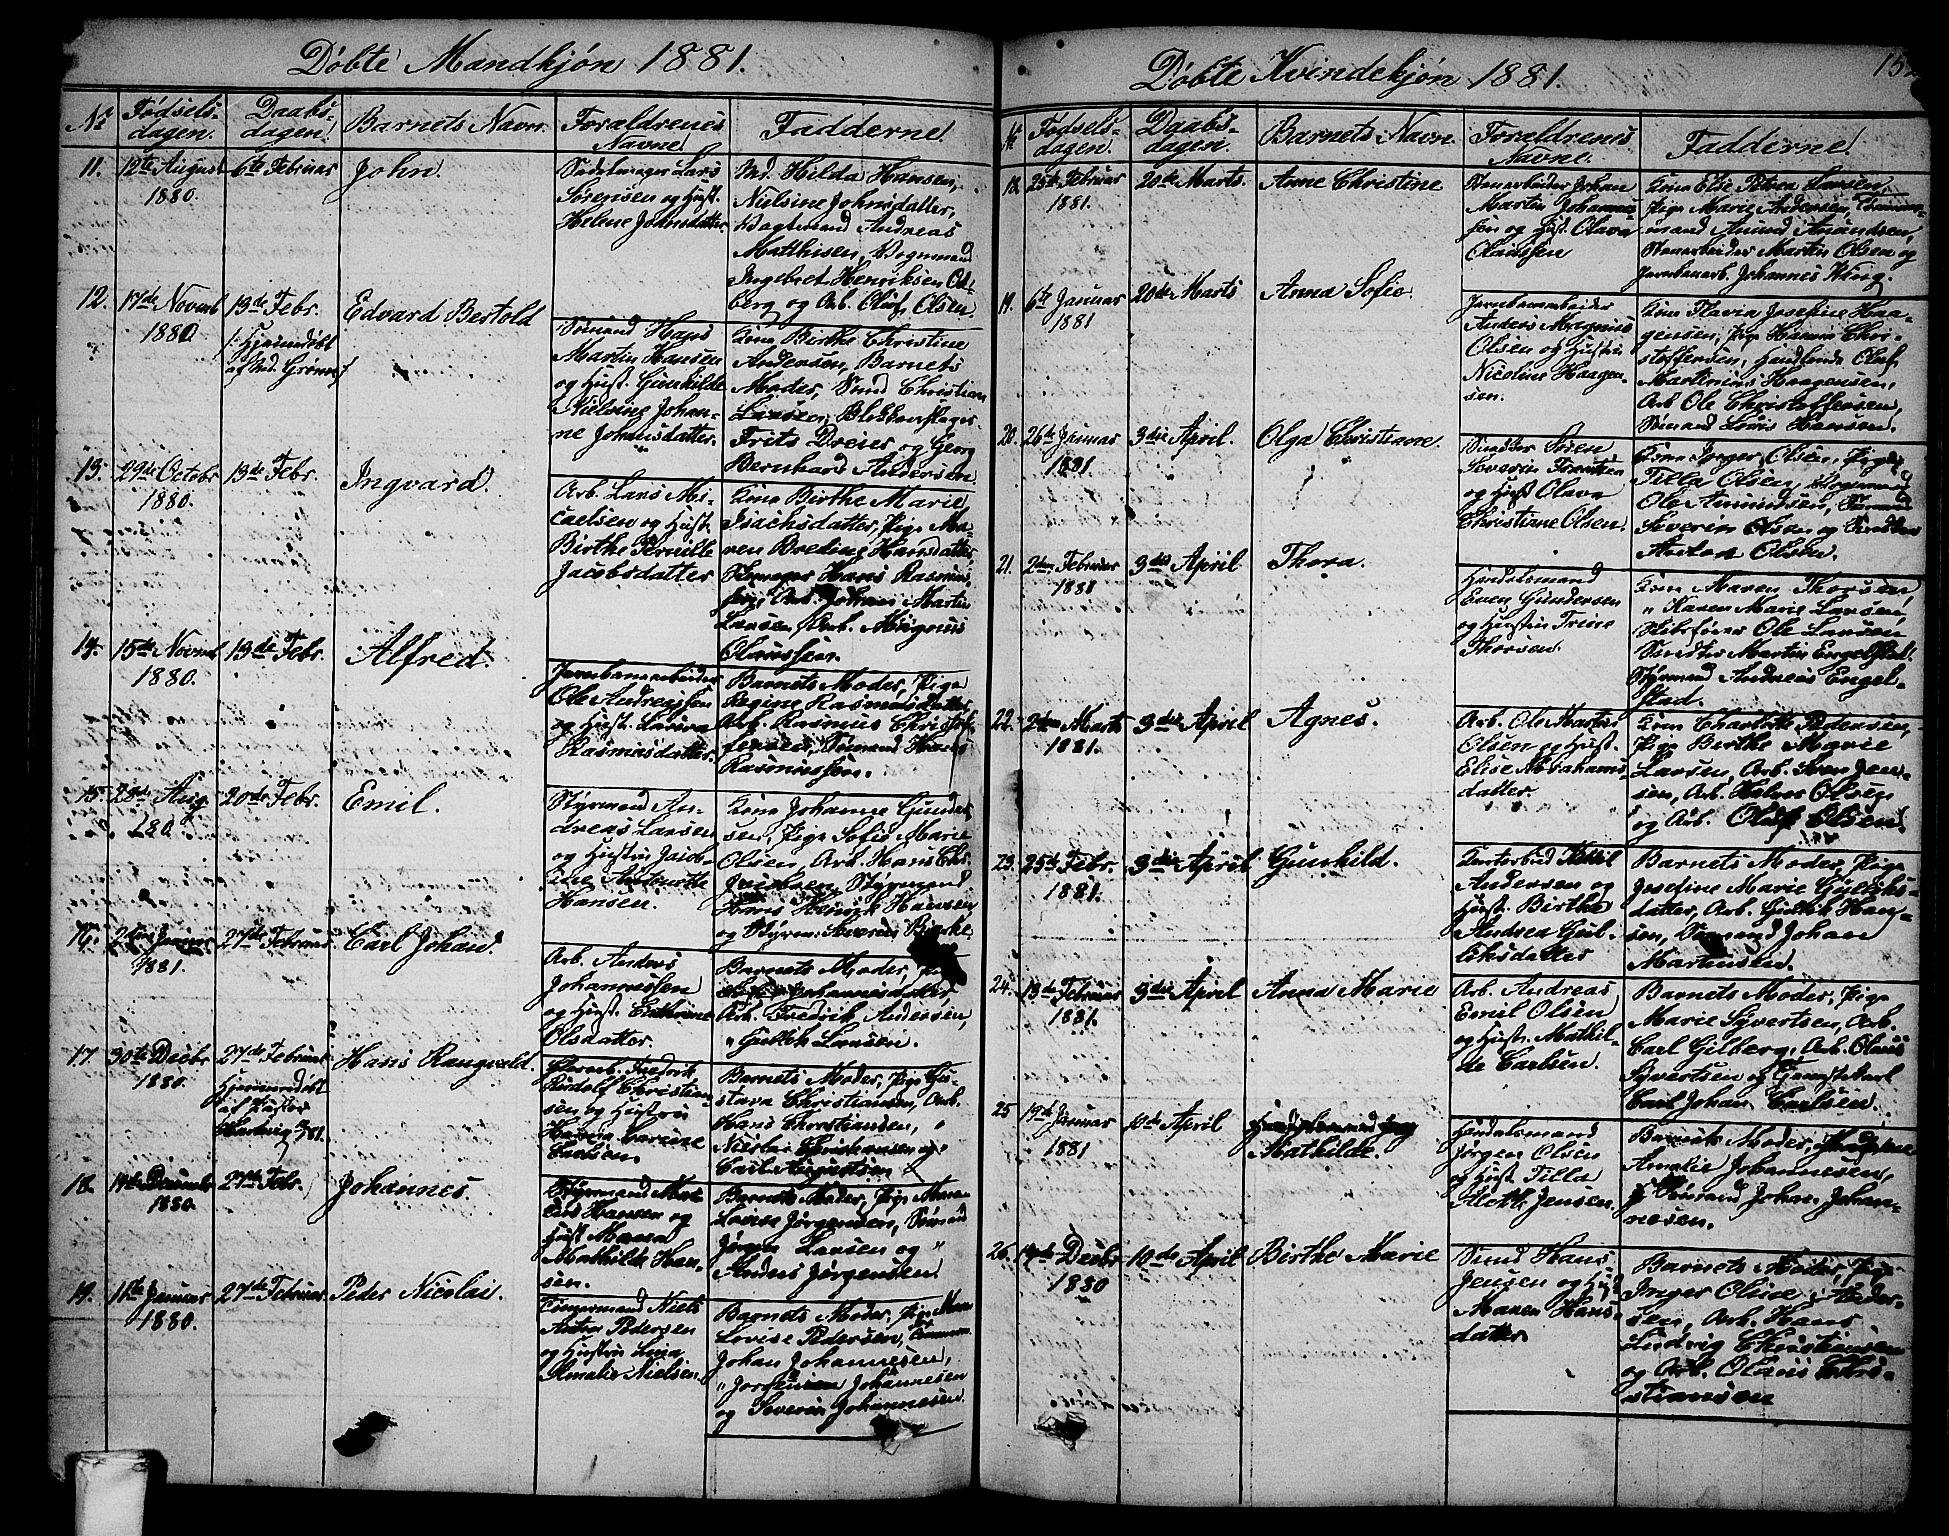 Døbte Mandkjøn 1881.
No
Fødsels-
dagen.
Daabs-
dagen.
Barnets Navn.
Forældrenes
Navne
Fadderne.
11.
12te August
1880.
6te Februar
John.
Sadelmager Lars
Sørensen og Hust.
Helene Johnsdatter
Md. Hilda Hansen,
Nielsine Johnsdatter,
Vagtmand Andreas
Mathisen, Vognmand
Ingebret Henriksen
berg og Arb. Oluf Olsen
12.
17de Novmb
1880
13de Febr.
Hjemmedøbt
af Md.
Edvard Bertold
Sømand Hans
Martin Hansen
og Hust. Gunhilde
Nielsine Johan-
ne Johansdatter.
Kone Birthe Christine
Andersen, Barnets
Moder, Smd Christian
Larsen,
Frits Dreier og Georg
Bernhard Andersen
13.
29de Octobr
1880.
13de Febr.
Ingvard.
Arb. Lars Mi-
caelsen og Hust.
Birthe Pernille
Jacobsdatter
Kone Birthe Marie
Isachsdatter, Pige Ma-
ren Bredine Hansdatter
Hans Rasmus-
sen, Arb. Johan Martin
Larsen, Arb. Magnus
Claussen.
14.
15de Novmb
1880.
13de Febr.
Alfred.
Jernbanearbeider
Ole Andreassen
og Hust. Lovise
Rasmusdatter.
Barnets Moder, Pige
Regine Rasmusdatter,
Arb. Rasmus Christof-
fersen, Sømand Hans
Rasmussen.
15.
23de Aug.
180
20de Febr.
Emil.
Styrmand An-
dreas Larsen
og Hustru Jacob-
ine Antonette
Hansen.
Kone Johanne Gunder-
sen, Pige Sofie Marie
Olsen, Arb. Hans Chr.
Jacobsen, Styrmand
Hans Henrik Hansen
og Styrm. Severin Bjerke.
16.
2den Januar
1881.
27de Februar
Carl Johan.
Arb. Anders
Johannessen
og Hust. Cathrine
Olsdatter.
Barnets Moder,
Johannesdatter,
Arb. Fredrik Andersen,
" Gullik Larsen.
17.
30te Decbr
1880.
27de Februar
Hjemmedøbt
af Pastor
Hartvig
Hans Rangvald
Fredrik
Rudolf Christian-
sen og Hustru
Hanna Carine
Carlsen.
Barnets Moder, Pige Gu-
stava Christiansen, Arb.
Hans Christiansen, "
Nicolai Christiansen og "
Carl Augustsen
18.
14de Decembr
1880.
27de Febr.
Johannes.
Styrmand
Hansen og
Hust. Maren
Mathilde Han-
sen.
Barnets Moder, Pige Maren
Lovise Jørgensen, Sømand
Jørgen Larsen og "
Anders Jørgensen
19.
11te Januar
1880.
27de Februar
Peder Nicolai.
Tømmermand Niels
Anton Pedersen
og Hustru Lina
Amalie Nielsen.
Barnets Moder, Pige Maren
Lovise Pedersen, Tømmerm.
Johan Johannesen,
" Jørgensen Johannesen
og Severin Johannesen.
Døbte Kvindekjøn 1881.
152
No
Fødsels-
dagen.
Daabs-
dagen.
Barnets Navn
Forældrenes
Navne.
Fadderne
18.
25de Februar
1881.
20de Marts.
Anne Christine
Stenarbeider Johan
Martin Johannes-
sen og Hust. Olava
Claussen
Kone Elise Petrea Larsen,
Pige Marie Andersen, Tømmer-
mand Amund Amundsen,
Stenarbeider Martin Olsen og
Jernbanearb. Johannes Wing.
19.
6te Januar
1881
20de Marts
Anna Sofie.
Jernbanearbeider
Anders Magnus
Olsen og Hustru
Nicoline Haagen-
sen.
Kone Flavia Josefine Haa-
gensen, Pige Hanna Chri-
stoffersen, Handlende Oluf
Martinius Haagensen,
Arb Ole Christoffersen,
Sømand Lovis Hansen.
20.
26de Januar
1881
3die April.
Olga Christiane.
Søren
Severin Frantsen
og Hust Olava
Christiane Olsen.
Kone Inger Olsen, Pige
Tilla Olsen,
Ole Amundsen,
Severin Olsen og
Anton Olsen.
21.
2den Februar
1881
3die April
Thora.
Handelsmand
Even Gundersen
og Hustru Trine
Thorsen.
Kone Maren Thorsen
" Karen Marie Larsen,
Skibsfører Ole Larsen
Martin Engelstad
Styrmand Andreas Engel-
stad.
22.
2den Marts
1881.
3die April
Agnes.
Arb. Ole Martin
Olsen og Hust.
Elise Abrahams-
datter.
Kone Charlotte Pedersen,
Pige Berthe Marie
Larsen, Arb. Sven Jen-
sen, Arb. Halvor Olsen
og Arb. Oluf Olsen.
23.
25de Febr.
1881.
3die April
Gunhild.
Kettil
Andersen og
Hust. Birthe
Andrea Gul-
liksdatter
Barnets Moder, Pige
Josefine Marie Gulliks-
datter, Arb. Gullik Han-
sen, Sømand Johan
Martinsen.
24.
13de Februar
1881.
3die April
Anna Marie
Arb. Andreas
Emil Olsen
og Hust. Mathil-
de Carlsen.
Barnets Moder, Pige
Marie Syvertsen, Arb.
Carl Gilberg, Arb. Olaus
Syvertsen og
Carl Johan Carlsen.
25
19de Januar
1881
10de April
Mathilde.
Handelsmand
Jørgen Olsen
og Hust Tilla
Jensen.
Barnets Moder,
Amalie Johannesen,
Sømand Johan Johan-
nesen.
26.
14de Decbr
1880
10de April
Birthe Marie
Smd Hans
Jensen og Hust
Maren Hans-
datter.
Barnets Moder, Pige
Inger Oline Ander-
sen, Arb. Hans
Ludvig Christiansen
og Arb. Olaus Chri-
stiansen